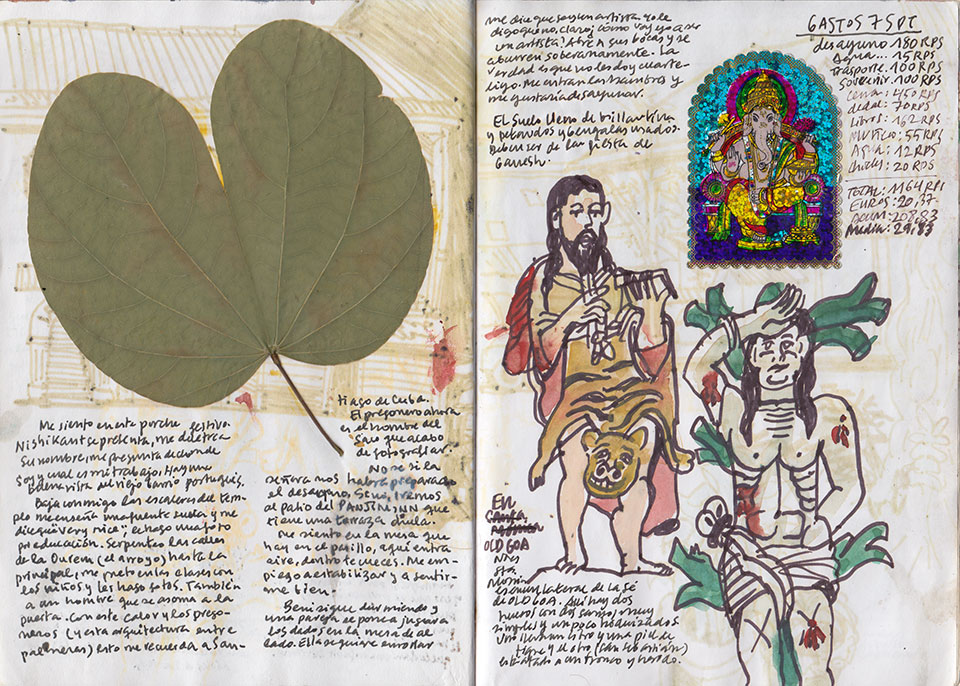 Me siento en este porche festivo.
Nishikant se presenta, me deletrea
su nombre, me pregunta de donde
soy y cual es mi trabajo. Hay una
buena vista al viejo barrio portugués.
Baja conmigo las escaleras del tem-
plo, me enseña una fuente sucia y me
dice "very nice", le hago una foto
por educación. Serpenteo las calles
de la Ourem (el arroyo) hasta la
principal, me meto en las clases con
los niños y les hago fotos. También
a un hombre que se asoma a la
puerta. Con este calor y los prego-
neros (y esta arquitectura entre
palmeras) esto me recuerda a San-
tiago de Cuba.
El pregonero ahora
es el hombre del
saco que acabo
de fotografiar.
No se si la
señora nos habrá preparado
el desayuno. Si no, iremos
al patio del PANJIM INN que
tiene una terraza chula.
Me siento en la mesa que
hay en el pasillo, aquí entra
aire, dentro te cueces. Me em-
piezo a estabilizar y a sentir-
me bien.
Beni sigue durmiendo y
una pareja se pone a jugar a
los dados en la mesa de al
lado. Ella se quiere enrollar
me dice que soy un artista. Yo le
digo que no, claro, ¿cómo voy yo a ser
un artista? Abre sus bocas y se
aburren soberanamente. La
verdad es que no les doy cuarte-
lillo. Me entran las hambres y
me gustaría desayunar.
El suelo lleno de brillantina
y petardos y bengalas usados.
Deben ser de la fiesta de
Ganesh.
GASTOS 7 SPT
desayuno 180 RPS
Agua... 15 RPS
Trasporte. 100 RPS
Souvenir. 100 RPS
Cena: 450 RPS
dedal: 70 RPS
Libros: 162 RPS
Museo: 55 RPS
Agua: 12 RPS
chicles: 20 RPS
TOTAL: 1164 RPS
EUROS: 20,37
ACUM: 208,83
Media: 29,83
EN
OLD GOA
es un lateral de la Sé
de OLD GOA. Aquí hay dos
huecos con dos santos, muy
simples y un poco modernizados.
Uno lleva un libro y una piel de
tigre y el otro (San Sebastián)
está atado a un tronco y herido.